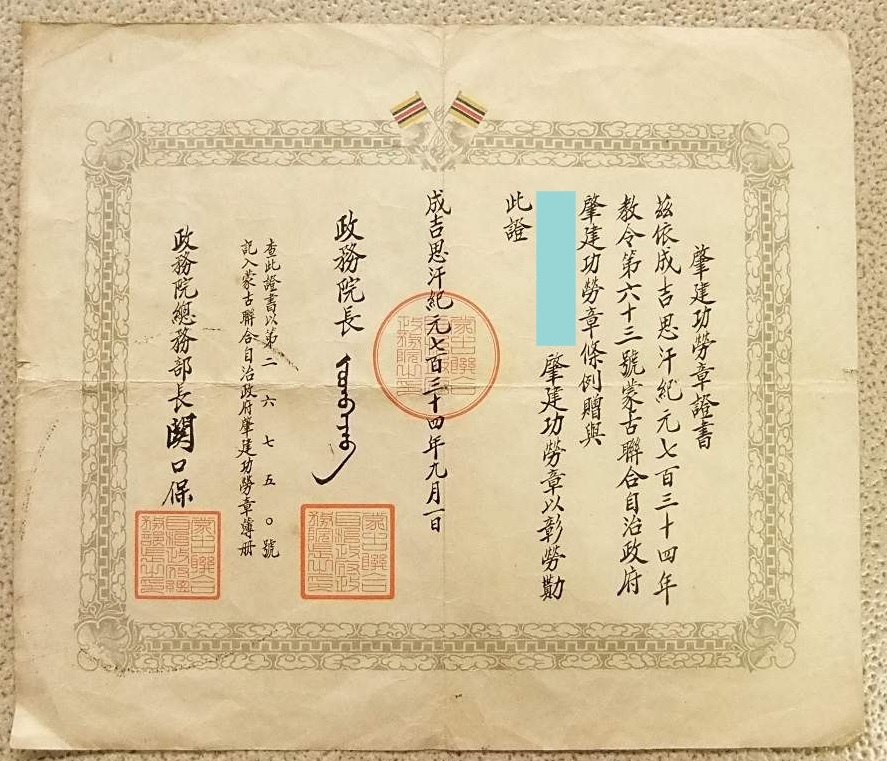 肇建功勞章證書
茲依成吉思汗紀元七百三十四年
教令第六十三號蒙古聯合自治政府
肇建功勞章條例贈與
肇建功勞章以彰勞勩
此證
成吉思汗紀元七百三十四年九月一日
政務院長
查此證書以第二六七五〇號
記入蒙古聯合自治政府肇建功勞章簿册
政務院總務部長關口保
蒙古聯合
蒙古聯合
自治政府政
務院長之印
蒙古聯合
自治政府總
務部長之印